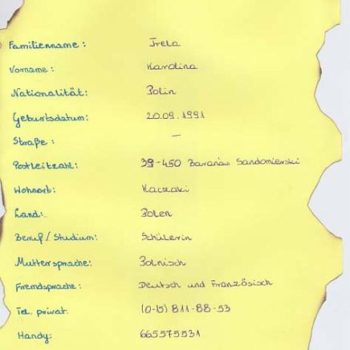 Familienname: Trela
Vorname: Karolina
Nationalität: Polin
Geburtsdatum: 20.09.1991
Straße: —
Postleitzahl: 39-450 Baranów Sandomierski
Wohnort: Kaczaki
Land: Polen
Beruf/Studium: Schülerin
Muttersprache: Polnisch
Fremdsprache: Deutsch und Französisch
Tel. privat: (0-15) 811-88-53
Handy: 665575531